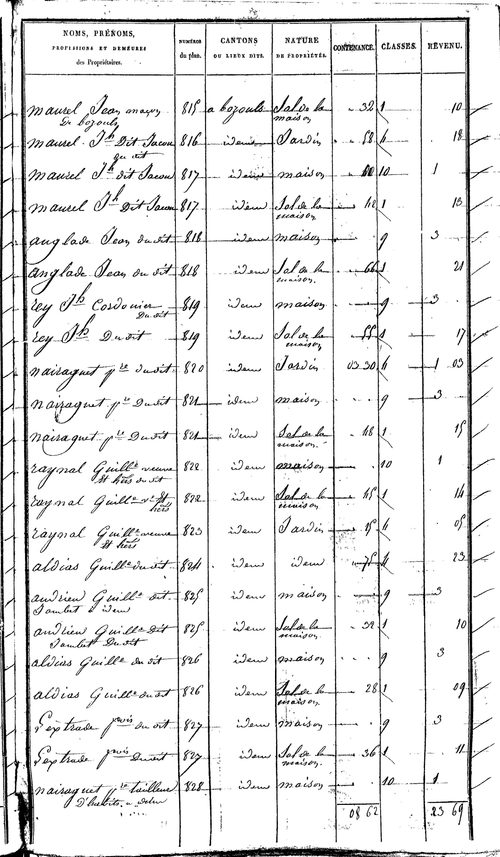 NOMS, PRÉNOMS, PROFESSIONS ET DEMEURES des Propriétaires. NUMÉROS du plan. CANTONS OU LIEUX DITS. NATURE DE PROPRIÉTÉS. CONTENANCE. CLASSES. REVENU.
maurel Jean maçon de bozouls 815 a bozouls Sol de la maison 32 1 10
maurel Jh Dit Jacou du dit 816 idem Jardin 58 4 18
maurel Jh dit Jacou 817 idem maison 10 1
maurel Jh Dit Jacou 817 idem Sol de la maison 42 1 13
anglade Jean du dit 818 idem maison 9 3
anglade Jean du dit 818 idem Sol de la maison 66 1 21
rey Jh Cordonier Du dit 819 idem maison 9 3
rey Jh Du dit 819 idem Sol de la maison 55 1 17
nairaguet pre du dit 820 idem Jardin 03 30 4 1 03
nairaguet pre Du dit 821 idem maison 9 3
nairaguet pre Du dit 821 idem Sol de la maison 48 1 15
raynal Guille veuve et hers du dit 822 idem maison 10 1
raynal Guille ve et hers 822 idem Sol de la maison 45 1 14
raynal Guille veuve et hers 823 idem Jardin 4 05
aldias Guille du dit 824 idem idem 75 4 23
andrieu Guille dit Jambet idem 825 idem maison 9 3
andrieu Guille Dit Jambet Du dit 825 idem Sol de la maison 32 1 10
aldias Guille du dit 826 idem maison 9 3
aldias Guille du dit 826 idem Sol de la maison 28 1 09
Lextrade du dit 827 idem maison 9 3
Lextrade Du dit 827 idem Sol de la maison 36 1 11
nairaguet pre tailleur 828 idem maison 10 1
08 62 23 69